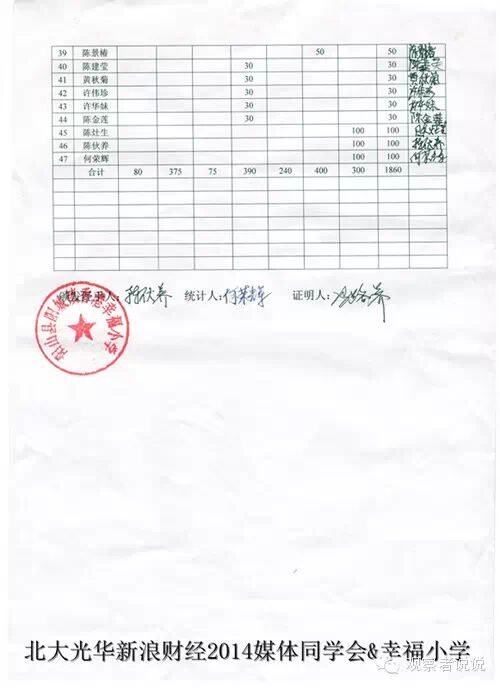 39 陈景椿 50 50
40 陈建莹 30 30
41 黄秋菊 30 30
42 许伟珍 30 30
43 许华妹 30 30
44 陈金莲 30 30 陈金莲
45 陈灶生 100 100
46 陈伙养 100 100 陈伙养
47 何荣辉 100 100 何荣辉
合计 80 375 75 390 240 400 300 1860
经手人：陈伙养 统计人：何荣辉 证明人：
幸福小学
北大光华新浪财经2014媒体同学会&幸福小学
观察者说说